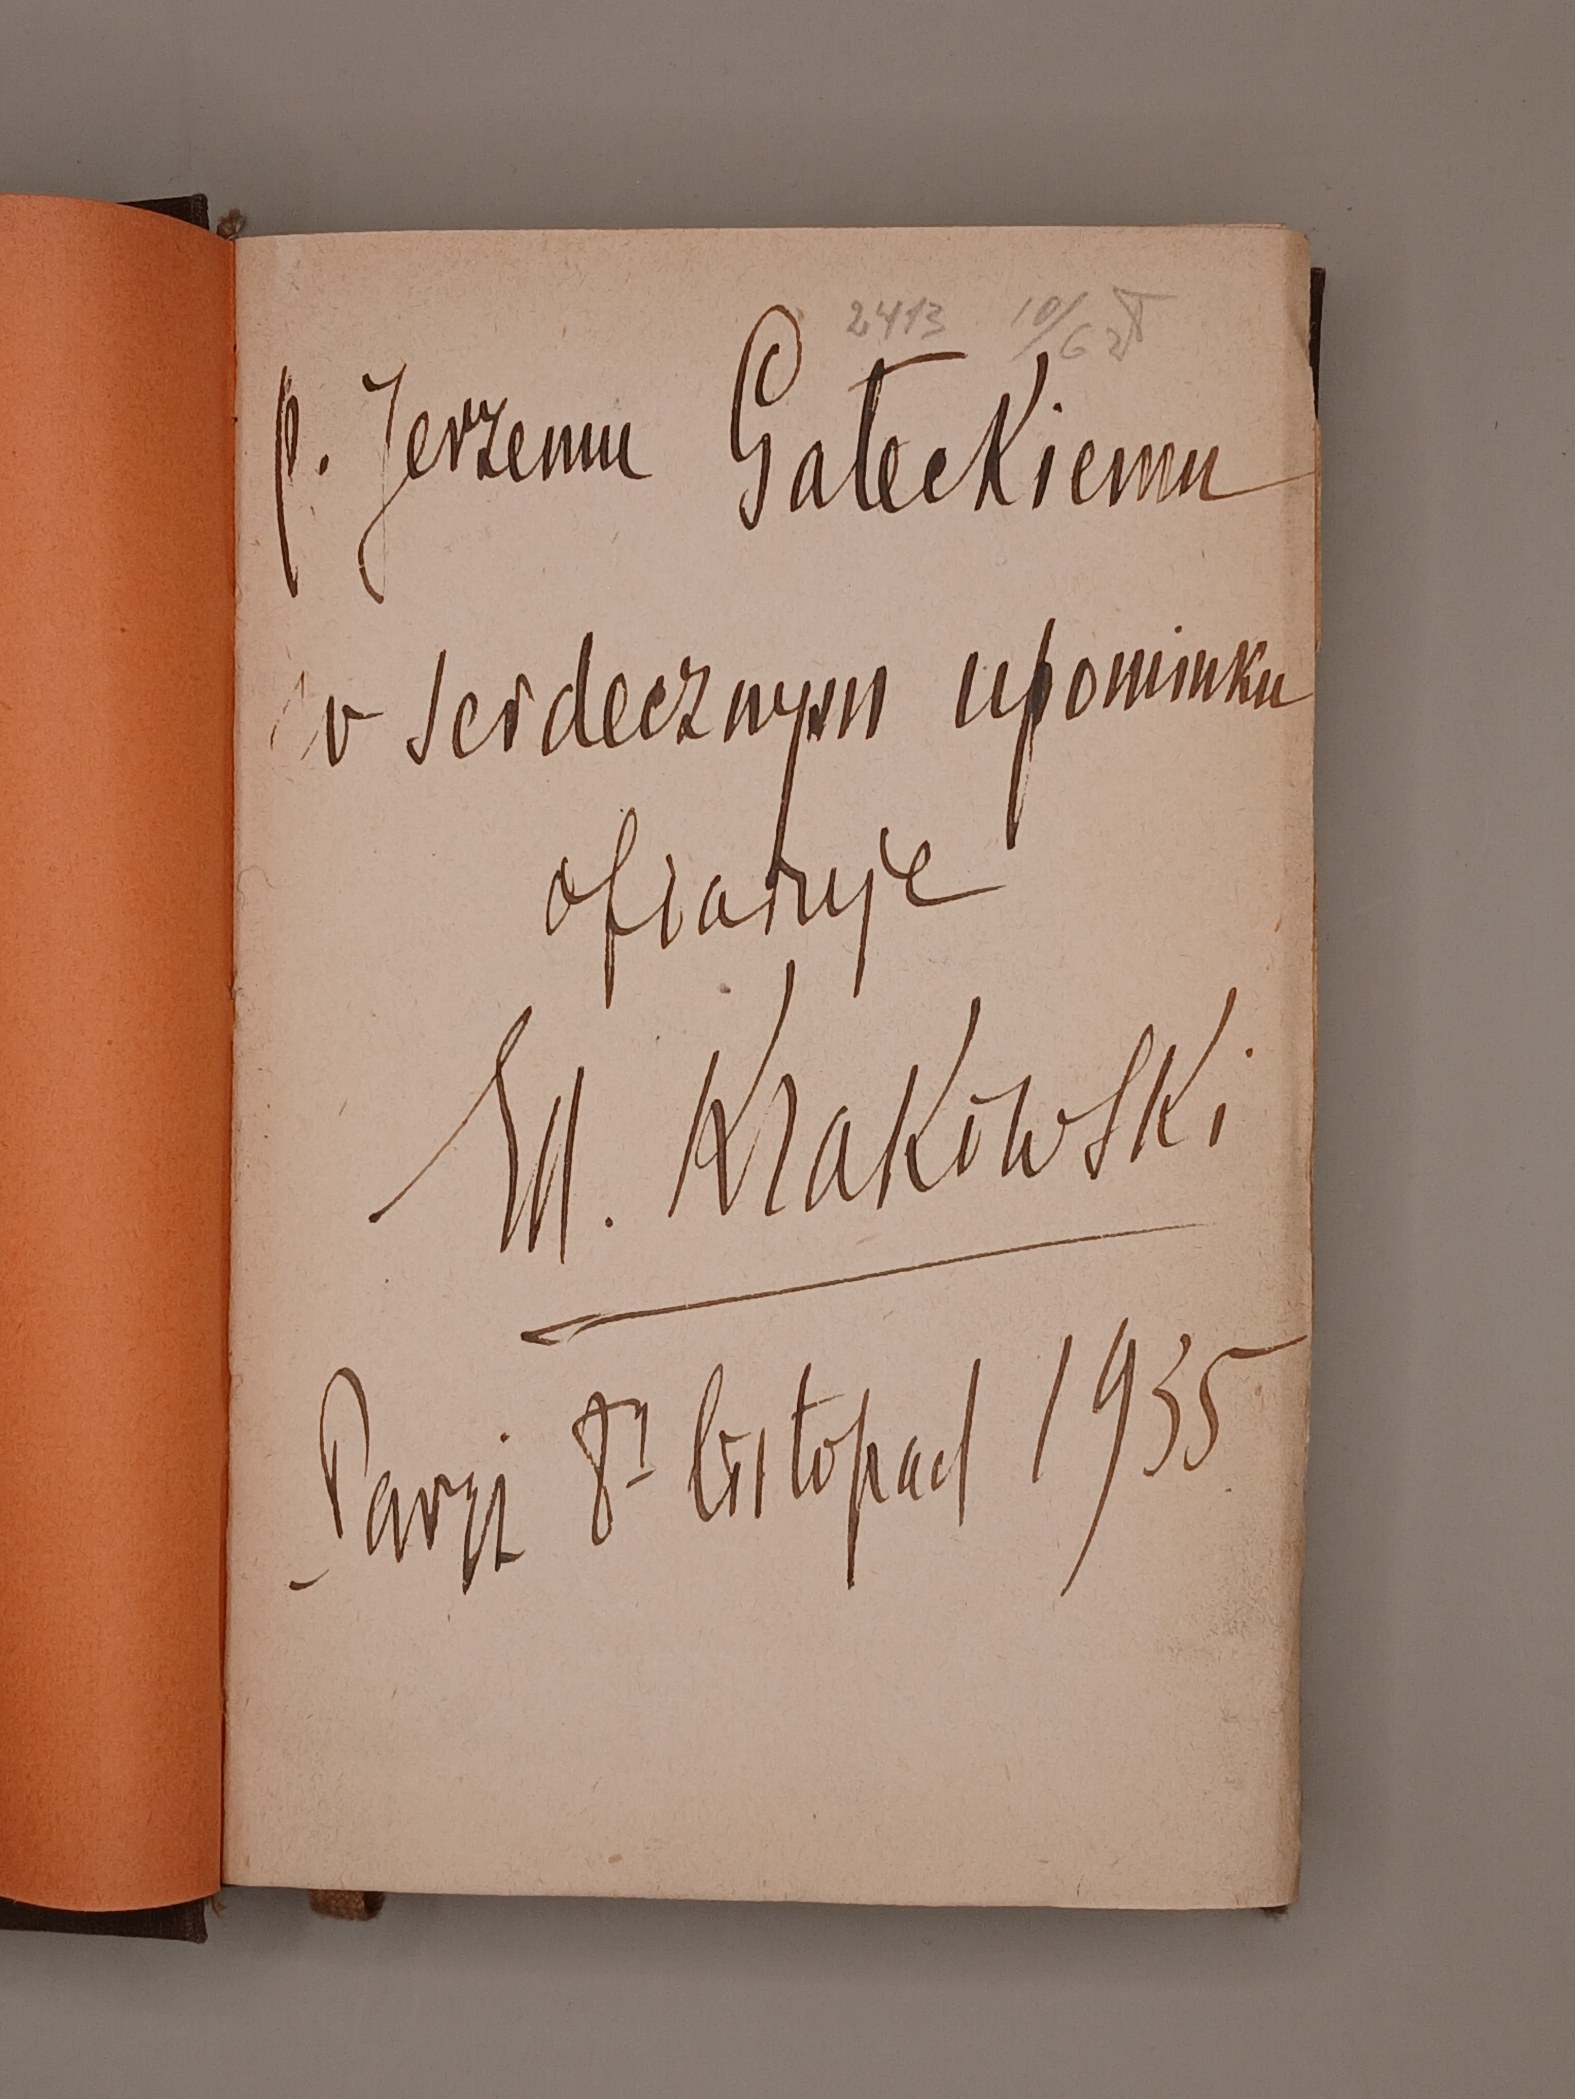 2413 10/6
p. Jerzemu Gałeckiemu
w serdecznym upominku
ofiaruje
Ed. Krakowski
Paryż 8 listopad 1935